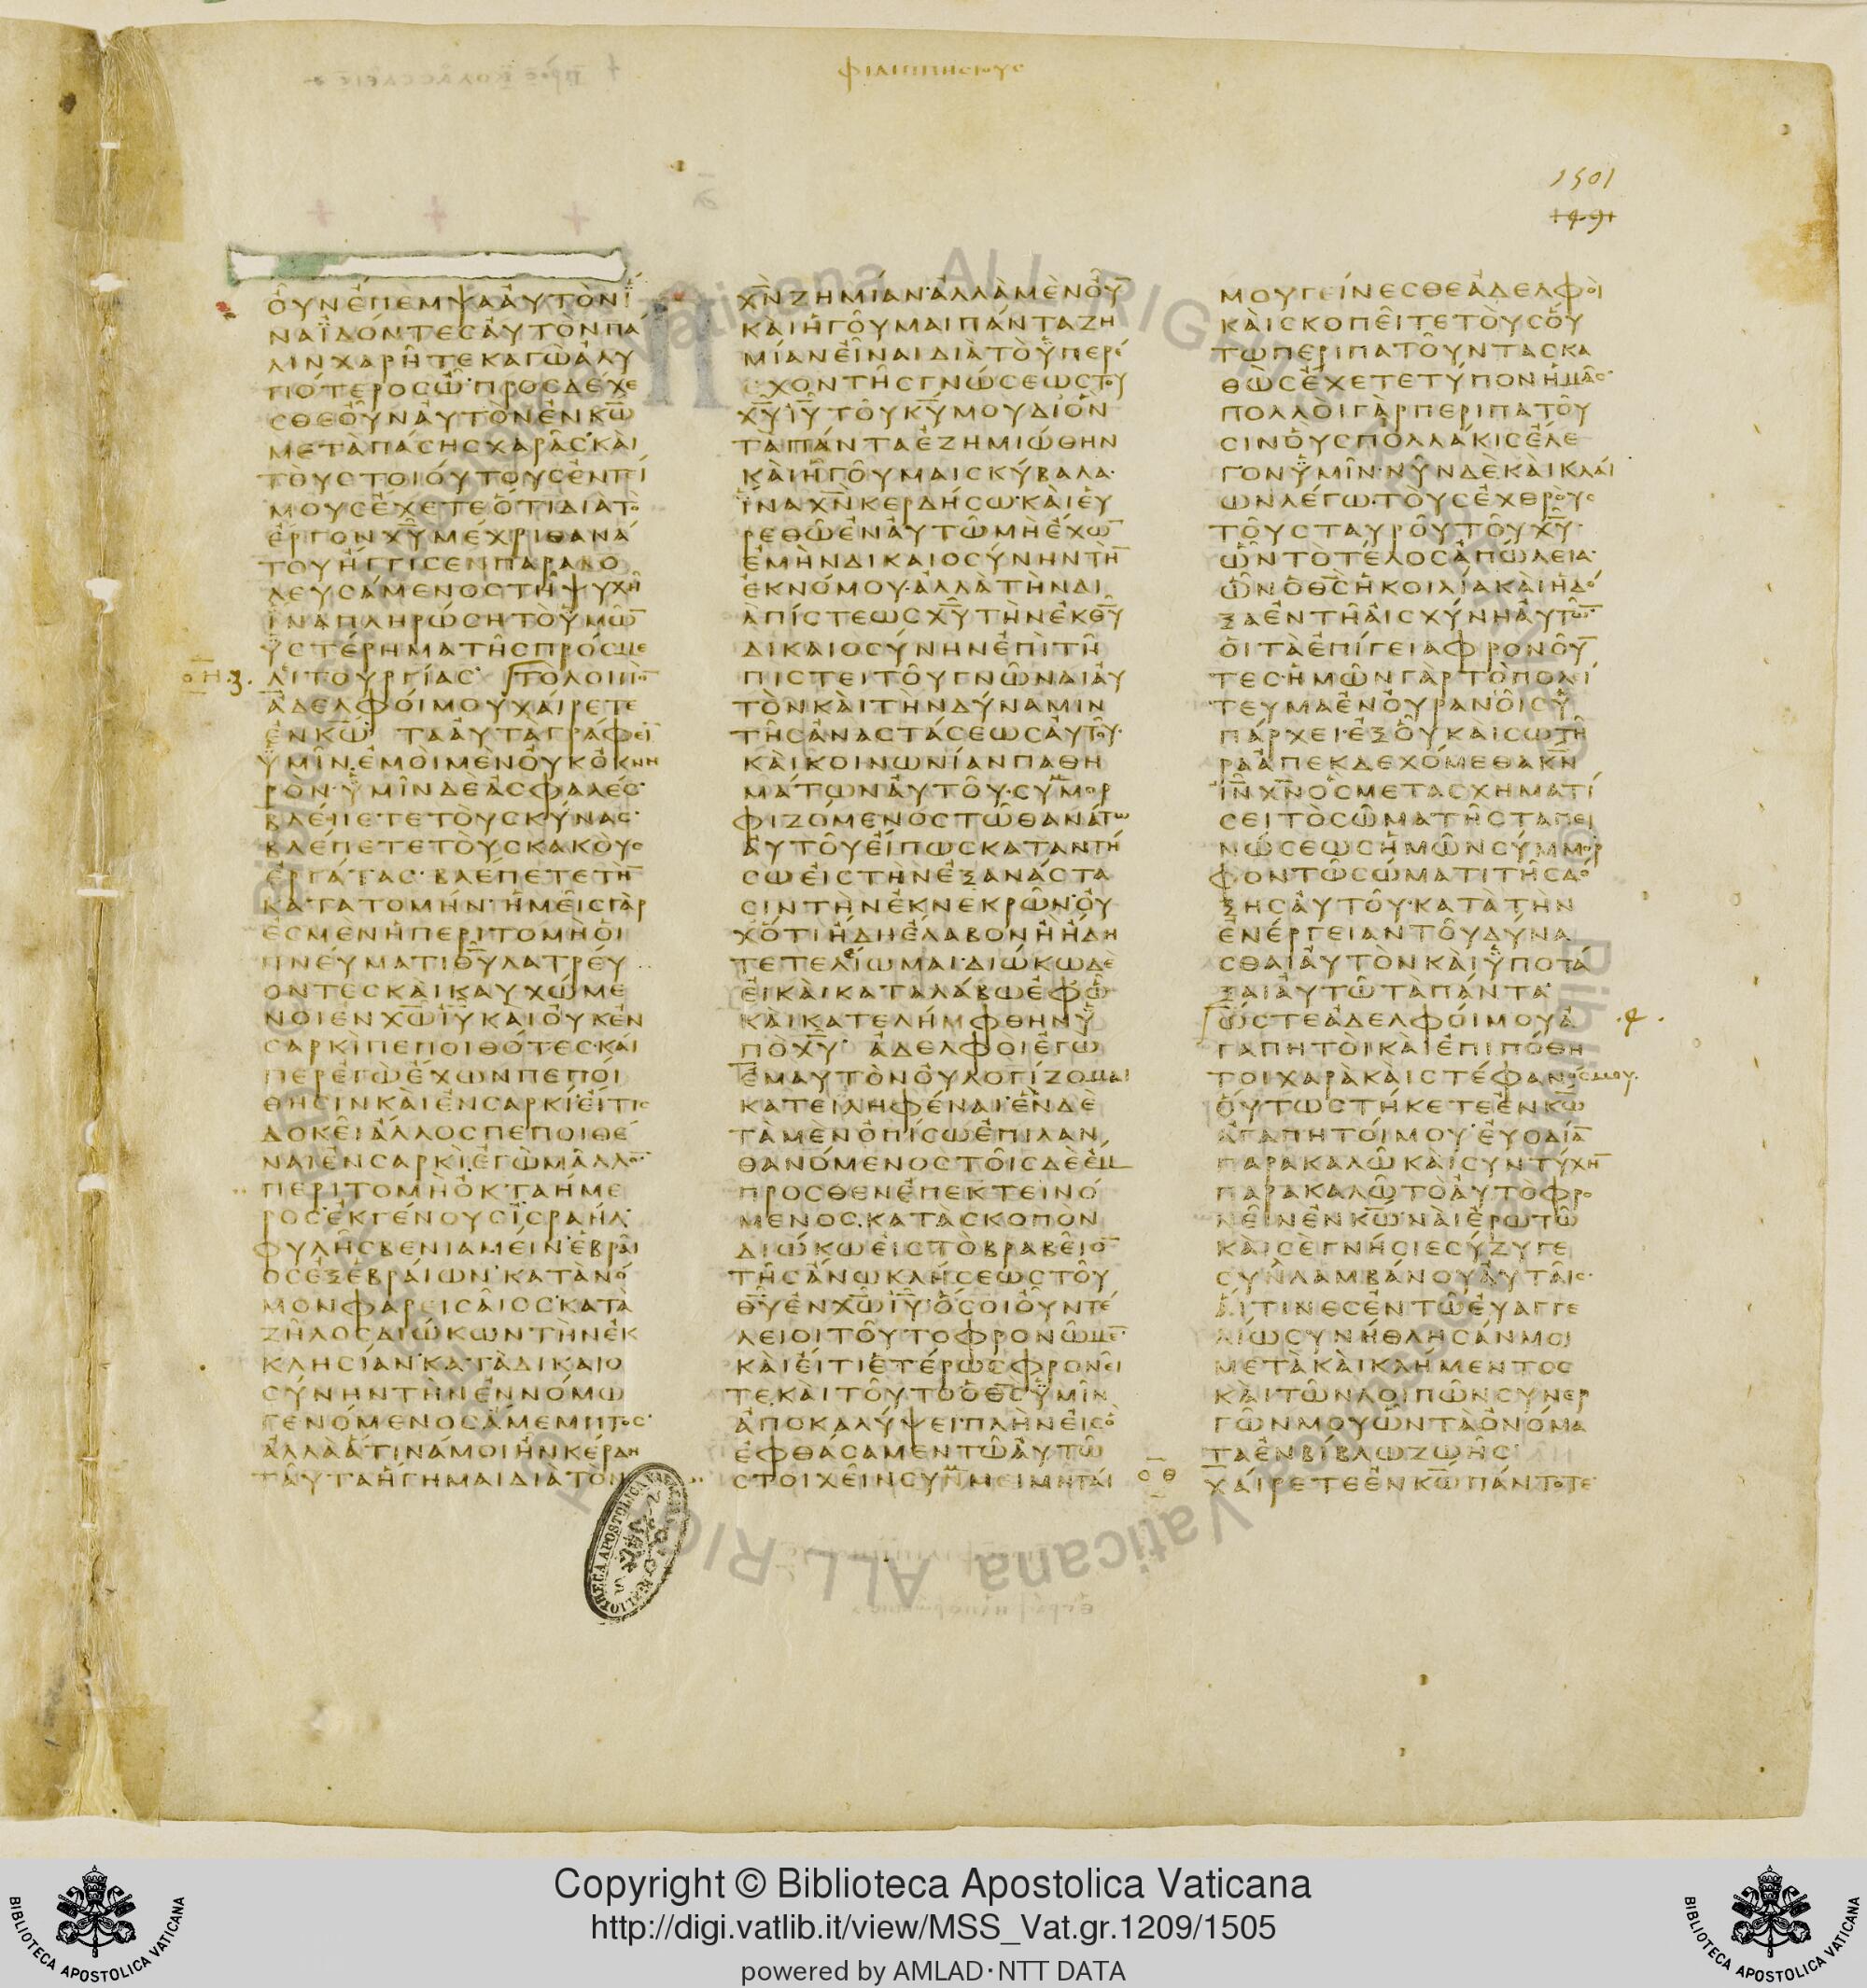 ΦΙΛΙΠΠΗϹΙΟΥϹ
1501
ὀῦν ἔπεμψα ἀυτὸν ἵ
να ἰδόντες ἀυτὸν πά
λιν χαρῆτε καγὼ ἀλυ
πότερος ὦ· προσδέχε
σθε ὀῦν ἀυτὸν ἐν κ̅ω̅
μετὰ πάσης χαρᾶς· κὰι
τὸυς τοιόυτους ἐντί
μους ἔχετε ὅτι διὰ τὸ
ἔργον χ̅υ̅ μέχρι θανά
του ἤγγισεν παραβο
λευσάμενος τῆ ψυχῆ
ἵνα πληρώση τὸ ὑμῶ̅
ὑστέρημα τῆς πρός με
λιτουργίας· τὸ λοιπὸ̅
ἀδελφόι μου χάιρετε
ἐν κ̅ω̅· τὰ ἀυτὰ γράφει̅
ὑμῖν· ἐμὸι μὲν ὀυκ ὀκνη
ρὸν· ὑμῖν δὲ ἀσφαλές·
βλέπετε τὸυς κύνας·
βλέπετε τὸυς κακὸυς
ἐργάτας· βλέπετε τὴ̅
κατατομήν· ἡμε͂ις γὰρ
ἐσμεν ἡ περιτομὴ ὁι
πνέυματι θ̅υ̅ λατρέυ
οντες κὰι καυχώμε
νοι ἐν χ̅ω̅ ι̅υ̅ και ὀυκ ἐν
σαρκὶ πεποιθότες· κάι
περ ἐγὼ ἔχων πεποί
θησιν κὰι ἐν σαρκί· ἔι τις
δοκε͂ι ἄλλος πεποιθέ
ναι ἐν σαρκὶ· ἐγὼ μᾶλλο̅·
περιτομὴ ὀκταήμε
ρος· ἐκ γένους ἰσραήλ·
φυλῆς βενιαμείν· ἑβρᾶι
ος ἐξ ἑβράιων· κατὰ νό
μον φαρεισᾶιος· κατὰ
ζῆλος διώκων τὴν ἐκ
κλησίαν· κατὰ δικαιο
σύνην τὴν ἐν νόμω
γενόμενος ἄμεμπτος·
ἀλλὰ ἅτινα μοι ἦν κέρδη
τᾶυτα ἥγημαι διὰ τὸν
χ̅ν̅ ζημίαν· ἀλλὰ μὲν ὀῦ̅
κὰι ἡγο͂υμαι πάντα ζη
μίαν ἐῖναι διὰ τὸ ὑπερέ
χον τῆς γνώσεως του
χ̅υ̅ ι̅υ̅ το͂υ κ̅υ̅ μου δι ὃν
τὰ πάντα ἐζημιώθην
κὰι ἡγο͂υμαι σκύβαλα·
ἵνα χ̅ν̅ κερδήσω· κὰι ἑυ
ρεθῶ ἐν ἀυτῶ μὴ ἔχω̅
ἐμὴν δικαιοσύνην τὴ̅
ἐκ νόμου· ἀλλὰ τὴν δι
ὰ πίστεως χ̅υ̅ τὴν ἐκ θ̅υ̅
δικαιοσύνην ἐπὶ τῆ
πιστει το͂υ γνῶναι ἀυ
τὸν κὰι τὴν δύναμιν
τῆς ἀναστάσεως ἀυτο͂υ·
κὰι κοινωνίαν παθη
μάτων ἀυτο͂υ· συμμορ
φιζόμενος τῶ θανάτω
ἀυτο͂υ ἔι πως καταντή
σω ἐις τὴν ἐξανάστα
σιν τὴν ἐκ νεκρῶν· ὀυ
χ ὅτι ἤδη ἔλαβον ἢ ἤδη
τετελείωμαι· διώκω δὲ
ἐι κὰι καταλάβω ἐφ ὧ
κὰι κατελήμφθην ὑ
πὸ χ̅υ̅· ἀδελφοι ἐγὼ
ἐμαυτὸν ὀυ λογίζομαι
κατειληφέναι· ἓν δὲ
τὰ μὲν ὀπίσω ἐπιλαν
θανόμενος το͂ις δὲ ἔμ
προσθεν ἐπεκτεινό
μενος· κατὰ σκοπὸν
διώκω ἐις τὸ βραβε͂ιο̅
τῆς ἄνω κλήσεως το͂υ
θ̅υ̅ ἐν χ̅ω̅ ι̅υ̅· ὅσοι ὀῦν τέ
λειοι το͂υτο φρονῶμε̅·
κὰι ἔι τι ἑτέρως φρονε͂ι
τε· κὰι το͂υτο ὁ θ̅ς̅ ὑμῖν
ἀποκαλύψει· πλὴν ἐις ὃ
ἐφθάσαμεν τῶ ἀυτῶ
στοιχε͂ιν συμμειμηταί
μου γείνεσθε ἀδελφὸι
κὰι σκοπε͂ιτε τὸυς ὅυ
τω περιπατο͂υντας κα
θὼς ἔχετε τύπον ἡμᾶς·
πολλὸι γὰρ περιπατο͂υ
σιν ὃυς πολλάκις ἔλε
γον ὑμῖν· νῦν δὲ κὰι κλάι
ων λέγω· τὸυς ἐχθρὸυς
το͂υ σταυρο͂υ το͂υ χ̅υ̅·
ὧν τὸ τέλος ἀπώλεια·
ὧν ὁ θ̅ς̅ ἡ κοιλία κὰι ἡ δό
ξα ἐν τῆ ἀισχύνη ἀυτῶ̅·
ὁι τὰ ἐπίγεια φρονο͂υ̅
τες· ἡμῶν γὰρ τὸ πολί
τευμα ἐν ὀυρανο͂ις ὑ
πάρχει· ἐξ ὁῦ κὰι σωτῆ
ρα ἀπεκδεχόμεθα κ̅ν̅
ι̅ν̅ χ̅ν̅ ὃς μετασχηματί
σει τὸ σῶμα τῆς ταπει
νώσεως ἡμῶν σύμμορ
φον τῶ σώματι τῆς δό
ξης ἀυτο͂υ· κατὰ τὴν
ἐνέργειαν το͂υ δύνα
σθαι ἀυτὸν κὰι ὑποτά
ξαι ἀυτῶ τὰ πάντα·
ὥστε ἀδελφόι μου ἀ
γαπητὸι κὰι ἐπιπόθη
τοι χαρὰ κὰι στέφανός μου·
ὅυτως στήκετε ἐν κ̅ω̅
ἀγαπητόι μου· ἐυοδία̅
παρακαλῶ κὰι συντύχη̅
παρακαλῶ τὸ ἀυτὸ φρο
νε͂ιν ἐν κ̅ω̅· νὰι ἐρωτῶ
κὰι σὲ γνήσιε σύζυγε
συνλαμβάνου ἀυτᾶις·
ἅιτινες ἐν τῶ ἐυαγγε
λίω συνήθλησάν μοι
μετὰ κὰι κλήμεντος
κὰι τῶν λοιπῶν συνερ
γῶν μου ὧν τὰ ὀνόμα
τα ἐν βίβλω ζωῆς·
χάιρετε ἐν κ̅ω̅ πάντοτε·
Copyright © Biblioteca Apostolica Vaticana
http://digi.vatlib.it/view/MSS_Vat.gr.1209/1505
powered by AMLAD·NTT DATA
BIBLIOTECA APOSTOLICA VATICANA
BIBLIOTECA APOSTOLICA VATICANA